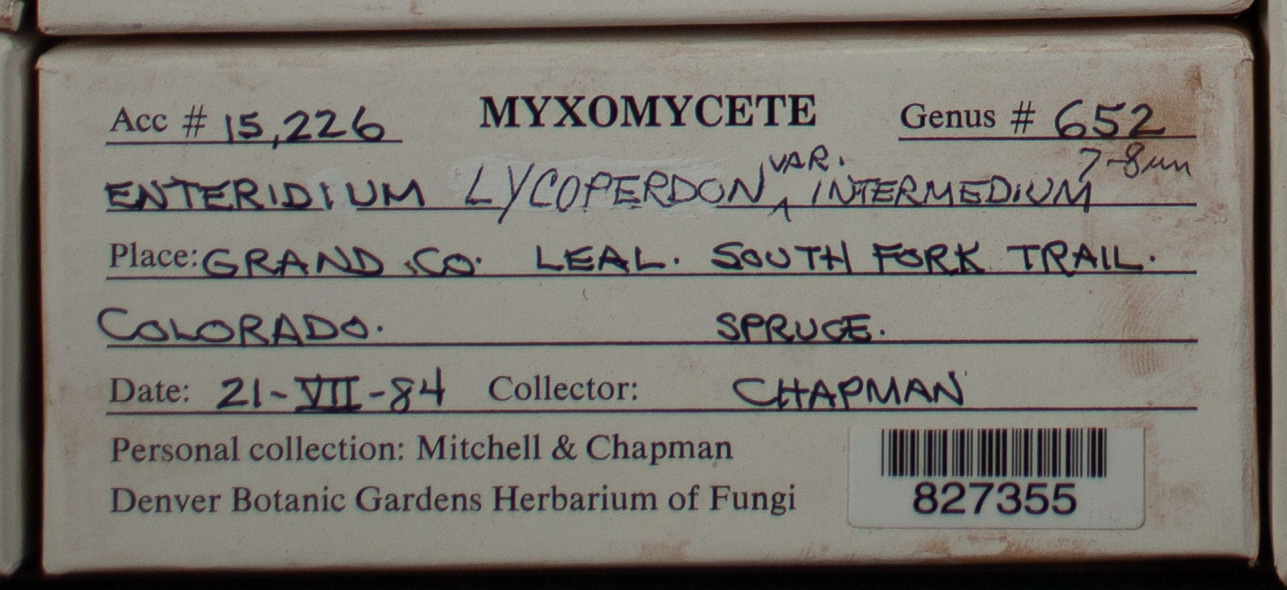 Acc # 15,226 MYXOMYCETE Genus # 652
7-8um
ENTERIDIUM LYCOPERDON VAR. INTERMEDIUM
Place: GRAND CO. LEAL. SOUTH FORK TRAIL.
COLORADO. SPRUCE.
Date: 21-VII-84 Collector: CHAPMAN
Personal collection: Mitchell & Chapman
Denver Botanic Gardens Herbarium of Fungi
827355